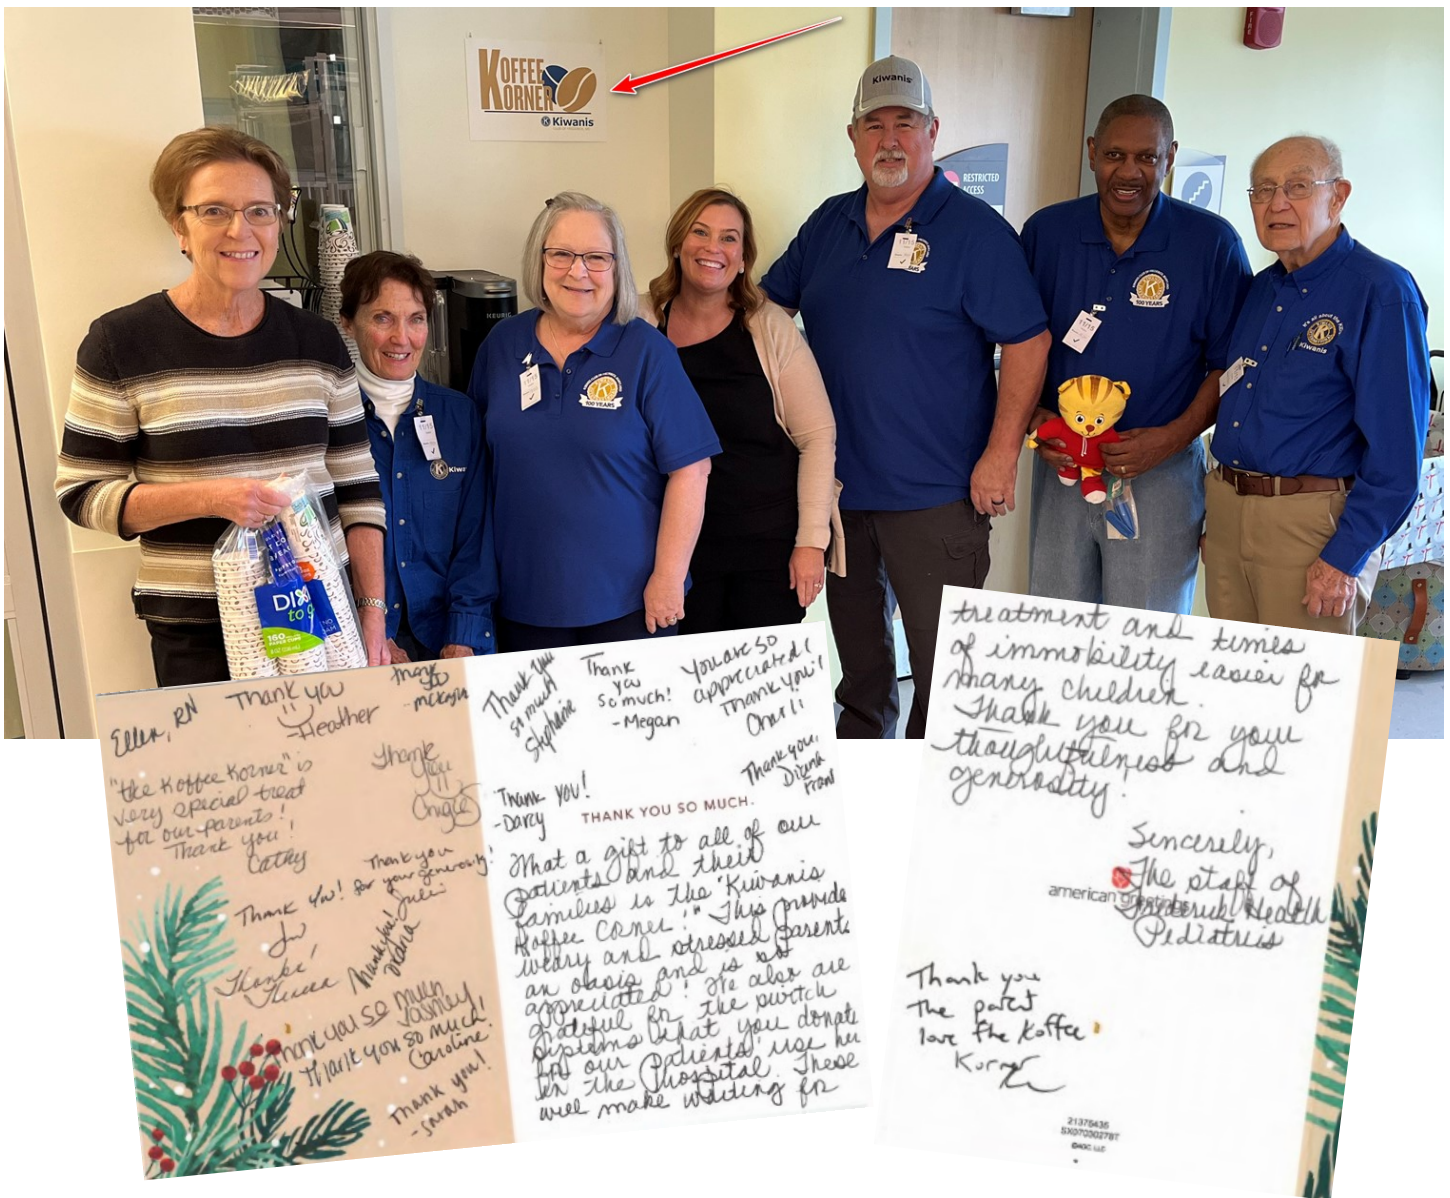 KOFFEE
KORNER
Kiwanis
Kiwanis
FIRE
RESTRICTED
ACCESS
KEURIG
100 YEARS
100 YEARS
It's all about the kids
Kiwanis
DIXIE
to go
160
PAPER CUPS
Ellen, RN
Thank you
-Heather
Thank
you
-McKayla
"the Koffee Korner" is
very special treat
for our parents!
Thank you!
Cathy
Thank
you
Angie
Thank you
for your generosity!
Juli
Thank you!
Jen
Thanks!
Theresa
Thank you!
Diana
Thank you so much
Ashley
Thank you so much!
Caroline
Thank you!
-Sarah
Thank you
so much
Stephanie
Thank
you
so much!
-Megan
You are so
appreciated!
Thank you!
Charli
Thank you!
-Darcy
Thank you,
Diana
Frant
THANK YOU SO MUCH.
What a gift to all of our
patients and their
families is the "Kiwanis
Koffee Corner!" This provide
weary and stressed parents
an oasis and is so
appreciated! We also are
grateful for the switch
systems that you donate
for our patients' use here
in the hospital. These
will make waiting for
treatment and times
of immobility easier for
many children.
Thank you for your
thoughtfulness and
generosity.
Sincerely,
The staff of
american greetings
Frederick Health
Pediatrics
Thank you
The parents
love the Koffee
Korner
21376435
SX07030278T
©AGC, LLC